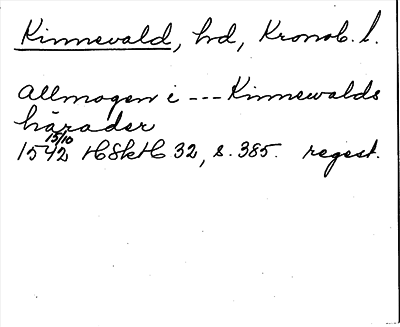 Kinnevald, hd, Kronob. l.
Allmogen i --- Kinnewalds
härader
15/10
1542 HSkH 32, s. 385. regest.